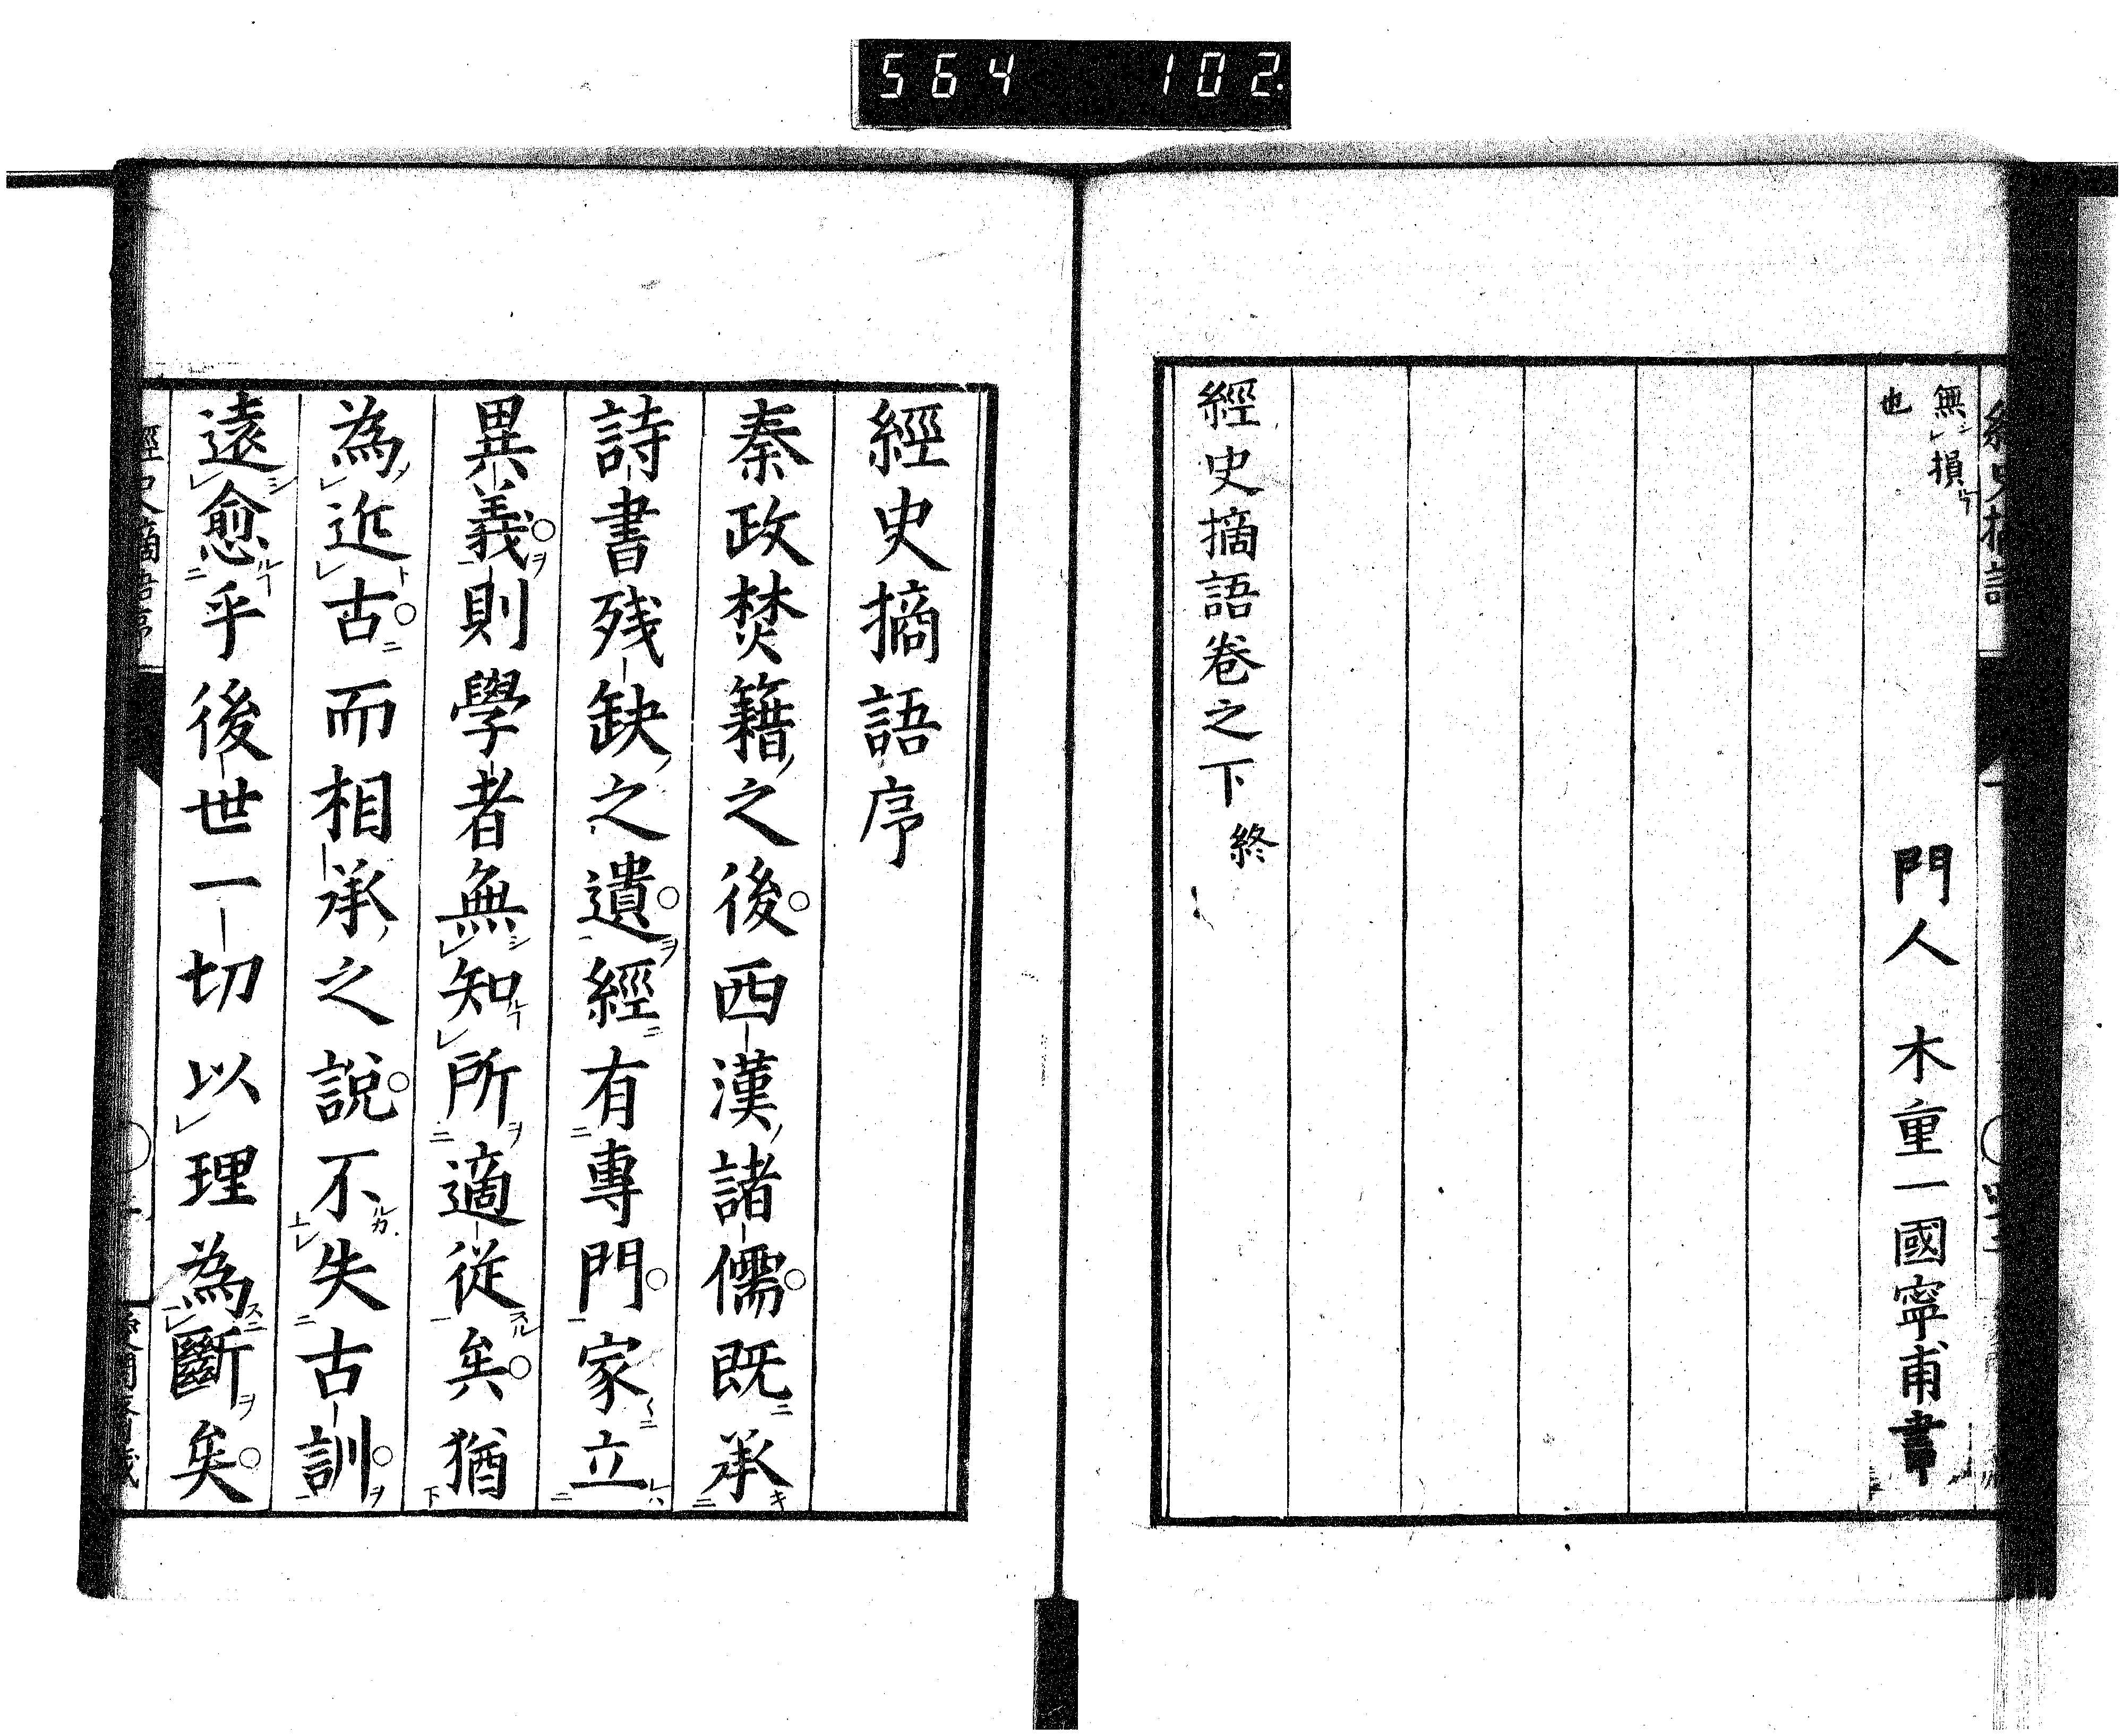 564 102
無損
也
門人 木重一國寧甫書
經史摘語卷之下 終
經史摘語序
秦政焚籍之後西漢諸儒既承
詩書残缺之遺經有專門家立
異義則學者無知所適從矣猶
為近古而相承之說不失古訓
遠愈乎後世一切以理為斷矣
經史摘語序